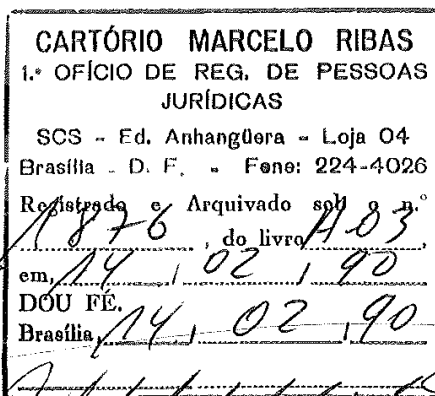 CARTÓRIO MARCELO RIBAS
1.º OFÍCIO DE REG. DE PESSOAS
JURÍDICAS
SCS - Ed. Anhangüera - Loja 04
Brasília - D. F. - Fone: 224-4026
Registrado e Arquivado sob o n.º
1876, do livro A03,
em, 14, 02, 90
DOU FÉ.
Brasília, 14, 02, 90